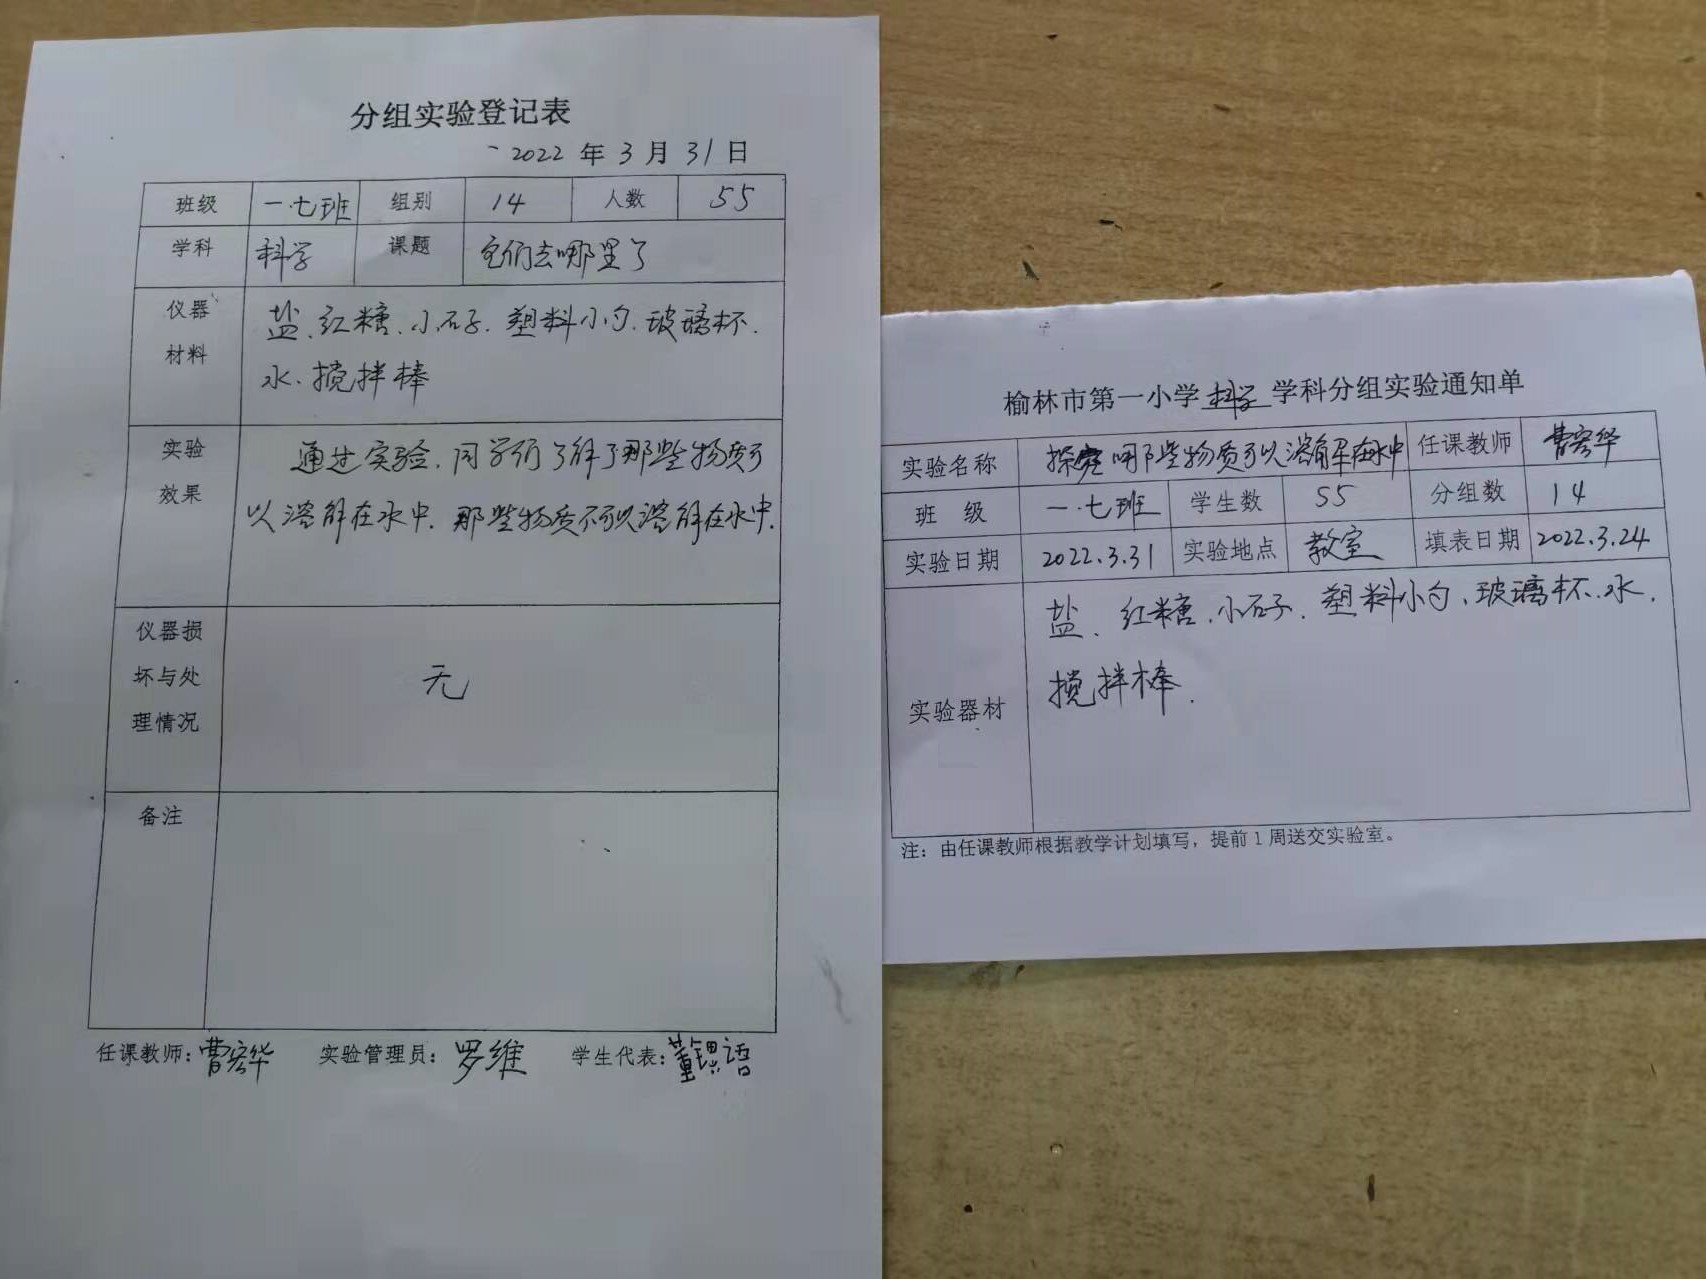 分组实验登记表
2022 年 3 月 31 日
班级 一.七班 组别 14 人数 55
学科 科学 课题 它们去哪里了
仪器
材料
盐、红糖、小石子、塑料小勺、玻璃杯、
水、搅拌棒
实验
效果
通过实验,同学们了解了那些物质可
以溶解在水中,那些物质不可以溶解在水中.
仪器损
坏与处
理情况
无
备注
任课教师:曹宏华 实验管理员:罗维 学生代表:董锞语
榆林市第一小学 科学 学科分组实验通知单
实验名称 探究哪些物质可以溶解在水中 任课教师 曹宏华
班 级 一.七班 学生数 55 分组数 14
实验日期 2022.3.31 实验地点 教室 填表日期 2022.3.24
实验器材
盐、红糖、小石子、塑料小勺、玻璃杯、水、
搅拌棒.
注:由任课教师根据教学计划填写,提前1周送交实验室。